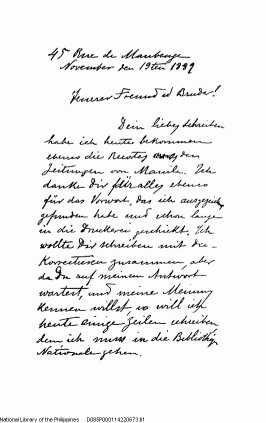 45 Rue de Maubeuge
November den 19ten 1889
Teurer Freund u Bruder!
Dein liebes Schreiben
habe ich heute bekommen
ebenso die Restes den
Zeitungen von Manila. Ich
danke Dir für alles ebenso
für das Vorwort, das ich ausgezeichnet
gefunden habe und schon lange
in die Druckerei geschickt. Ich
wollte Dir schreiben mit die
Korrecturen zusammen, aber
da Du auf meinen Antwort
wartest, und meine Meinung
kennen willst, so will ich
heute einige Zeilen schreiben
denn ich muss in die Bibliothèque
Nationale gehen.
National Library of the Philippines D00SP000114220673.tif